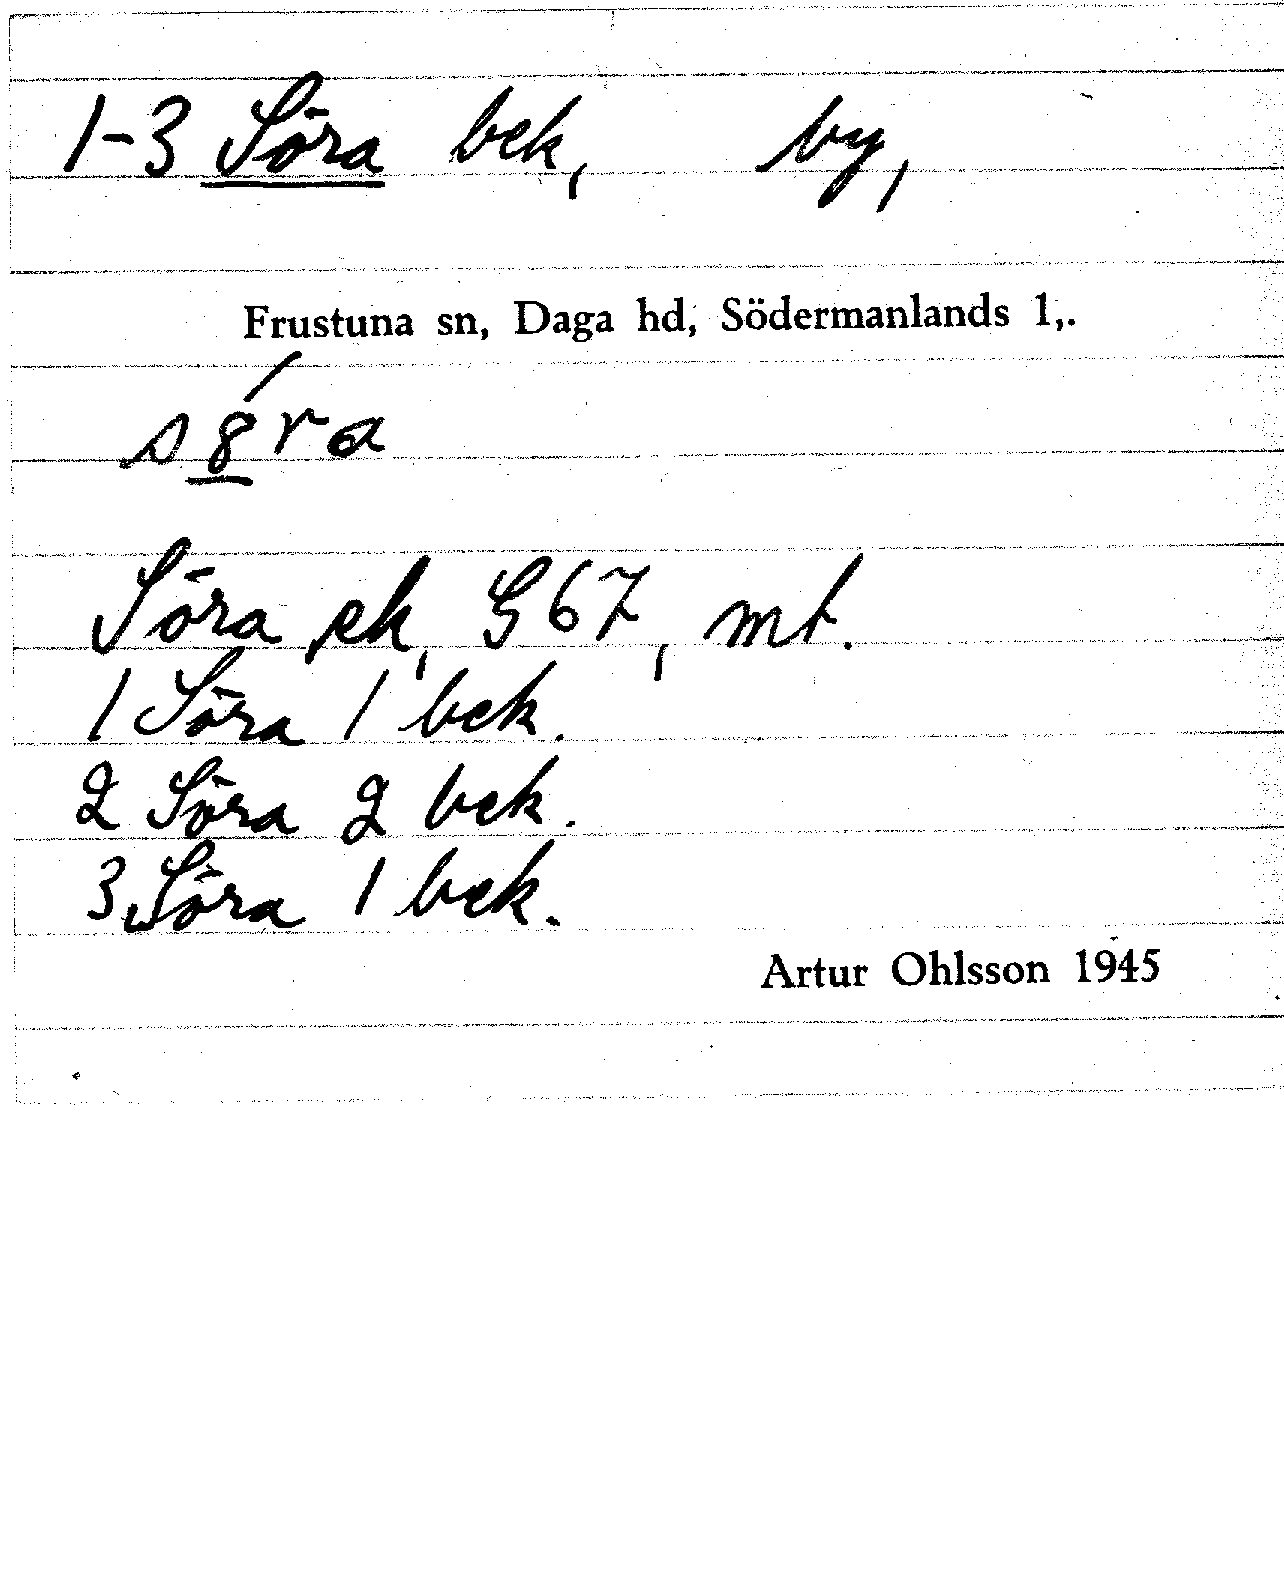 1-3 Söra bek, by,
Frustuna sn, Daga hd, Södermanlands l,.
s8́ra
Söra ek, G 67, mt.
1 Söra 1 bek.
2 Söra 2 bek.
3 Söra 1 bek.
Artur Ohlsson 1945